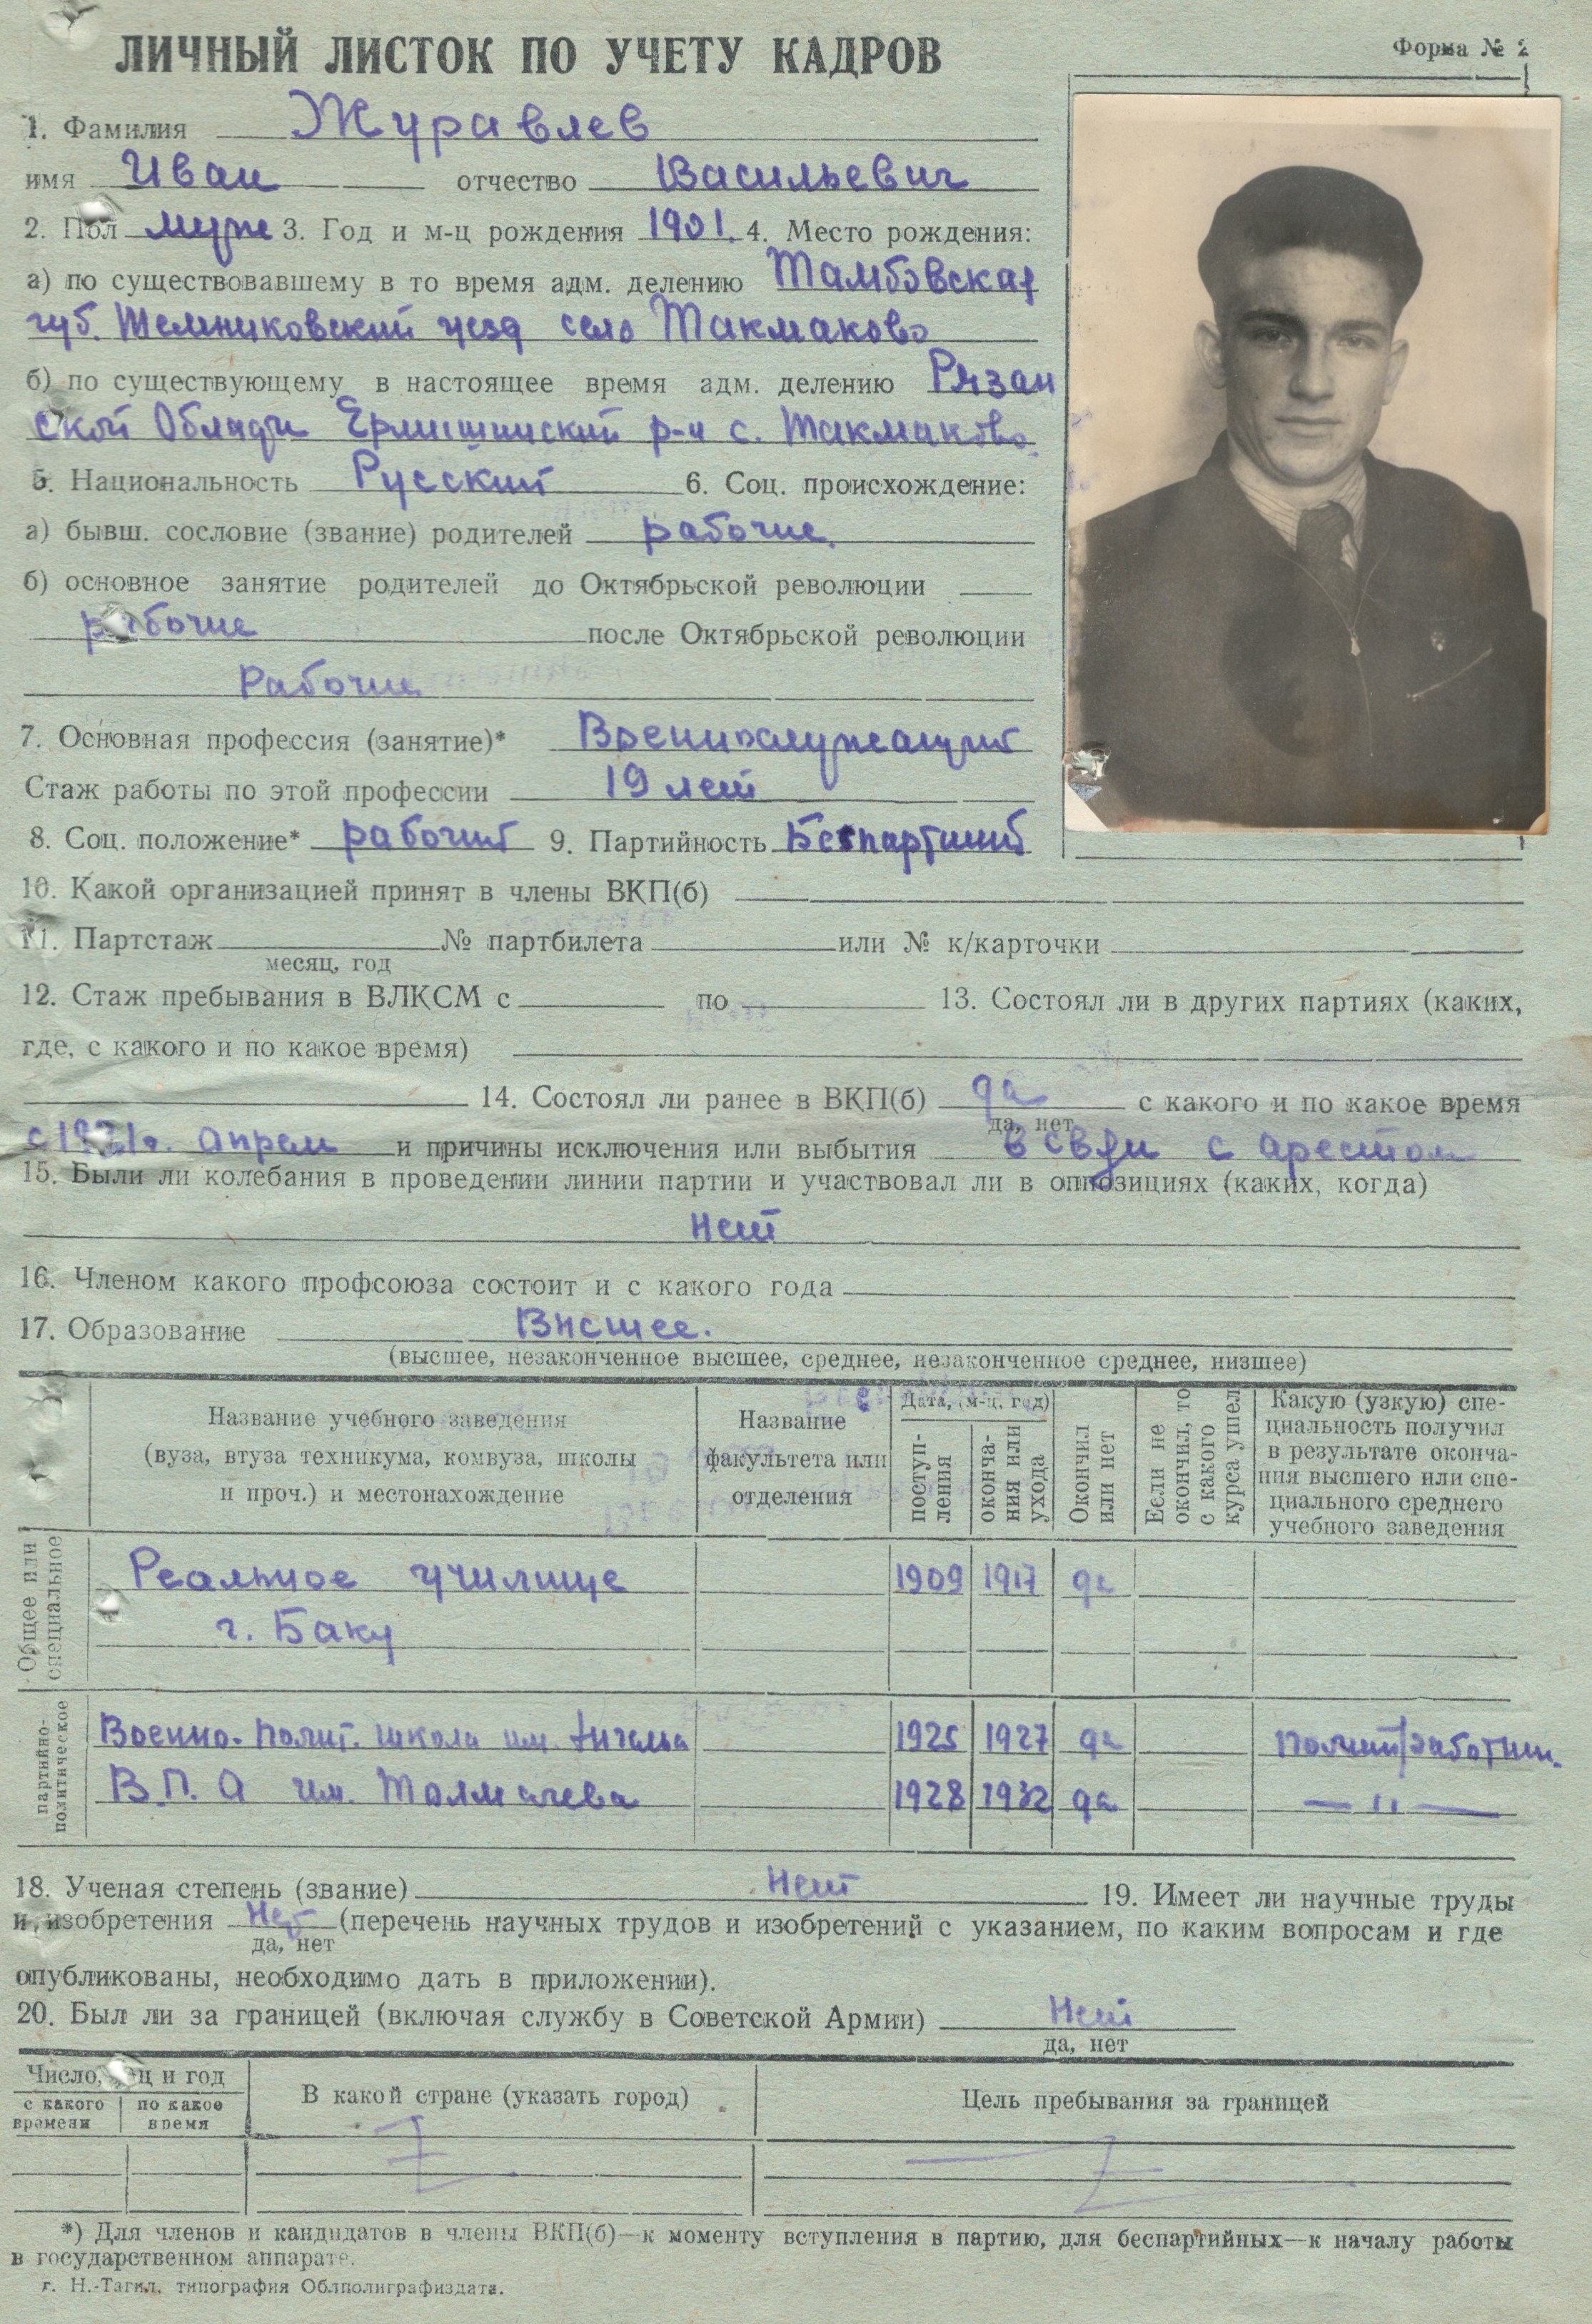 ЛИЧНЫЙ ЛИСТОК ПО УЧЕТУ КАДРОВ
Форма № 2
1. Фамилия Журавлев
имя Иван отчество Васильевич
2. Пол муж 3. Год и м-ц рождения 1901. 4. Место рождения:
а) по существовавшему в то время адм. делению Тамбовская
губ. Темниковский уезд село Такмаково
б) по существующему в настоящее время адм. делению Рязан
ской Ермишинский р-н с. Такмаково.
5. Национальность Русский 6. Соц. происхождение:
а) бывш. сословие (звание) родителей рабочие.
б) основное занятие родителей до Октябрьской революции
рабочие после Октябрьской революции
Рабочие
7. Основная профессия (занятие)* Военнослужащий
Стаж работы по этой профессии 19 лет
8. Соц. положение* рабочий 9. Партийность Беспартийный
10. Какой организацией принят в члены ВКП(б)
11. Партстаж № партбилета или № к/карточки
месяц, год
12. Стаж пребывания в ВЛКСМ с по 13. Состоял ли в других партиях (каких,
где, с какого и по какое время)
14. Состоял ли ранее в ВКП(б) да с какого и по какое время
да, нет
с 1921г. апрель и причины исключения или выбытия в связи с арестом
15. Были ли колебания в проведении линии партии и участвовал ли в оппозициях (каких, когда)
Нет
16. Членом какого профсоюза состоит и с какого года
17. Образование Высшее.
(высшее, незаконченное высшее, среднее, незаконченное среднее, низшее)
Название учебного заведения
(вуза, втуза техникума, комвуза, школы
и проч.) и местонахождение
Название
факультета или
отделения
Дата, (м-ц, год)
поступ-
ления
оконча-
ния или
ухода
Окончил
или нет
Если не
окончил, то
с какого
курса ушел
Какую (узкую) спе-
циальность получил
в результате оконча-
ния высшего или спе-
циального среднего
учебного заведения
Общее или
специальное
Реальное училище 1909 1917 да
г. Баку
партийно-
политическое
Военно-полит. школа им. Энгельса 1925 1927 да полит/работник.
В.П.А им. Толмачева 1928 1932 да — " —
18. Ученая степень (звание) Нет 19. Имеет ли научные труды
и изобретения Нет (перечень научных трудов и изобретений с указанием, по каким вопросам и где
да, нет
опубликованы, необходимо дать в приложении).
20. Был ли за границей (включая службу в Советской Армии) Нет
да, нет
Число, м-ц и год
с какого
времени
по какое
время
В какой стране (указать город)
Цель пребывания за границей
*) Для членов и кандидатов в члены ВКП(б)—к моменту вступления в партию, для беспартийных—к началу работы
в государственном аппарате.
г. Н.-Тагил, типография Облполиграфиздата.